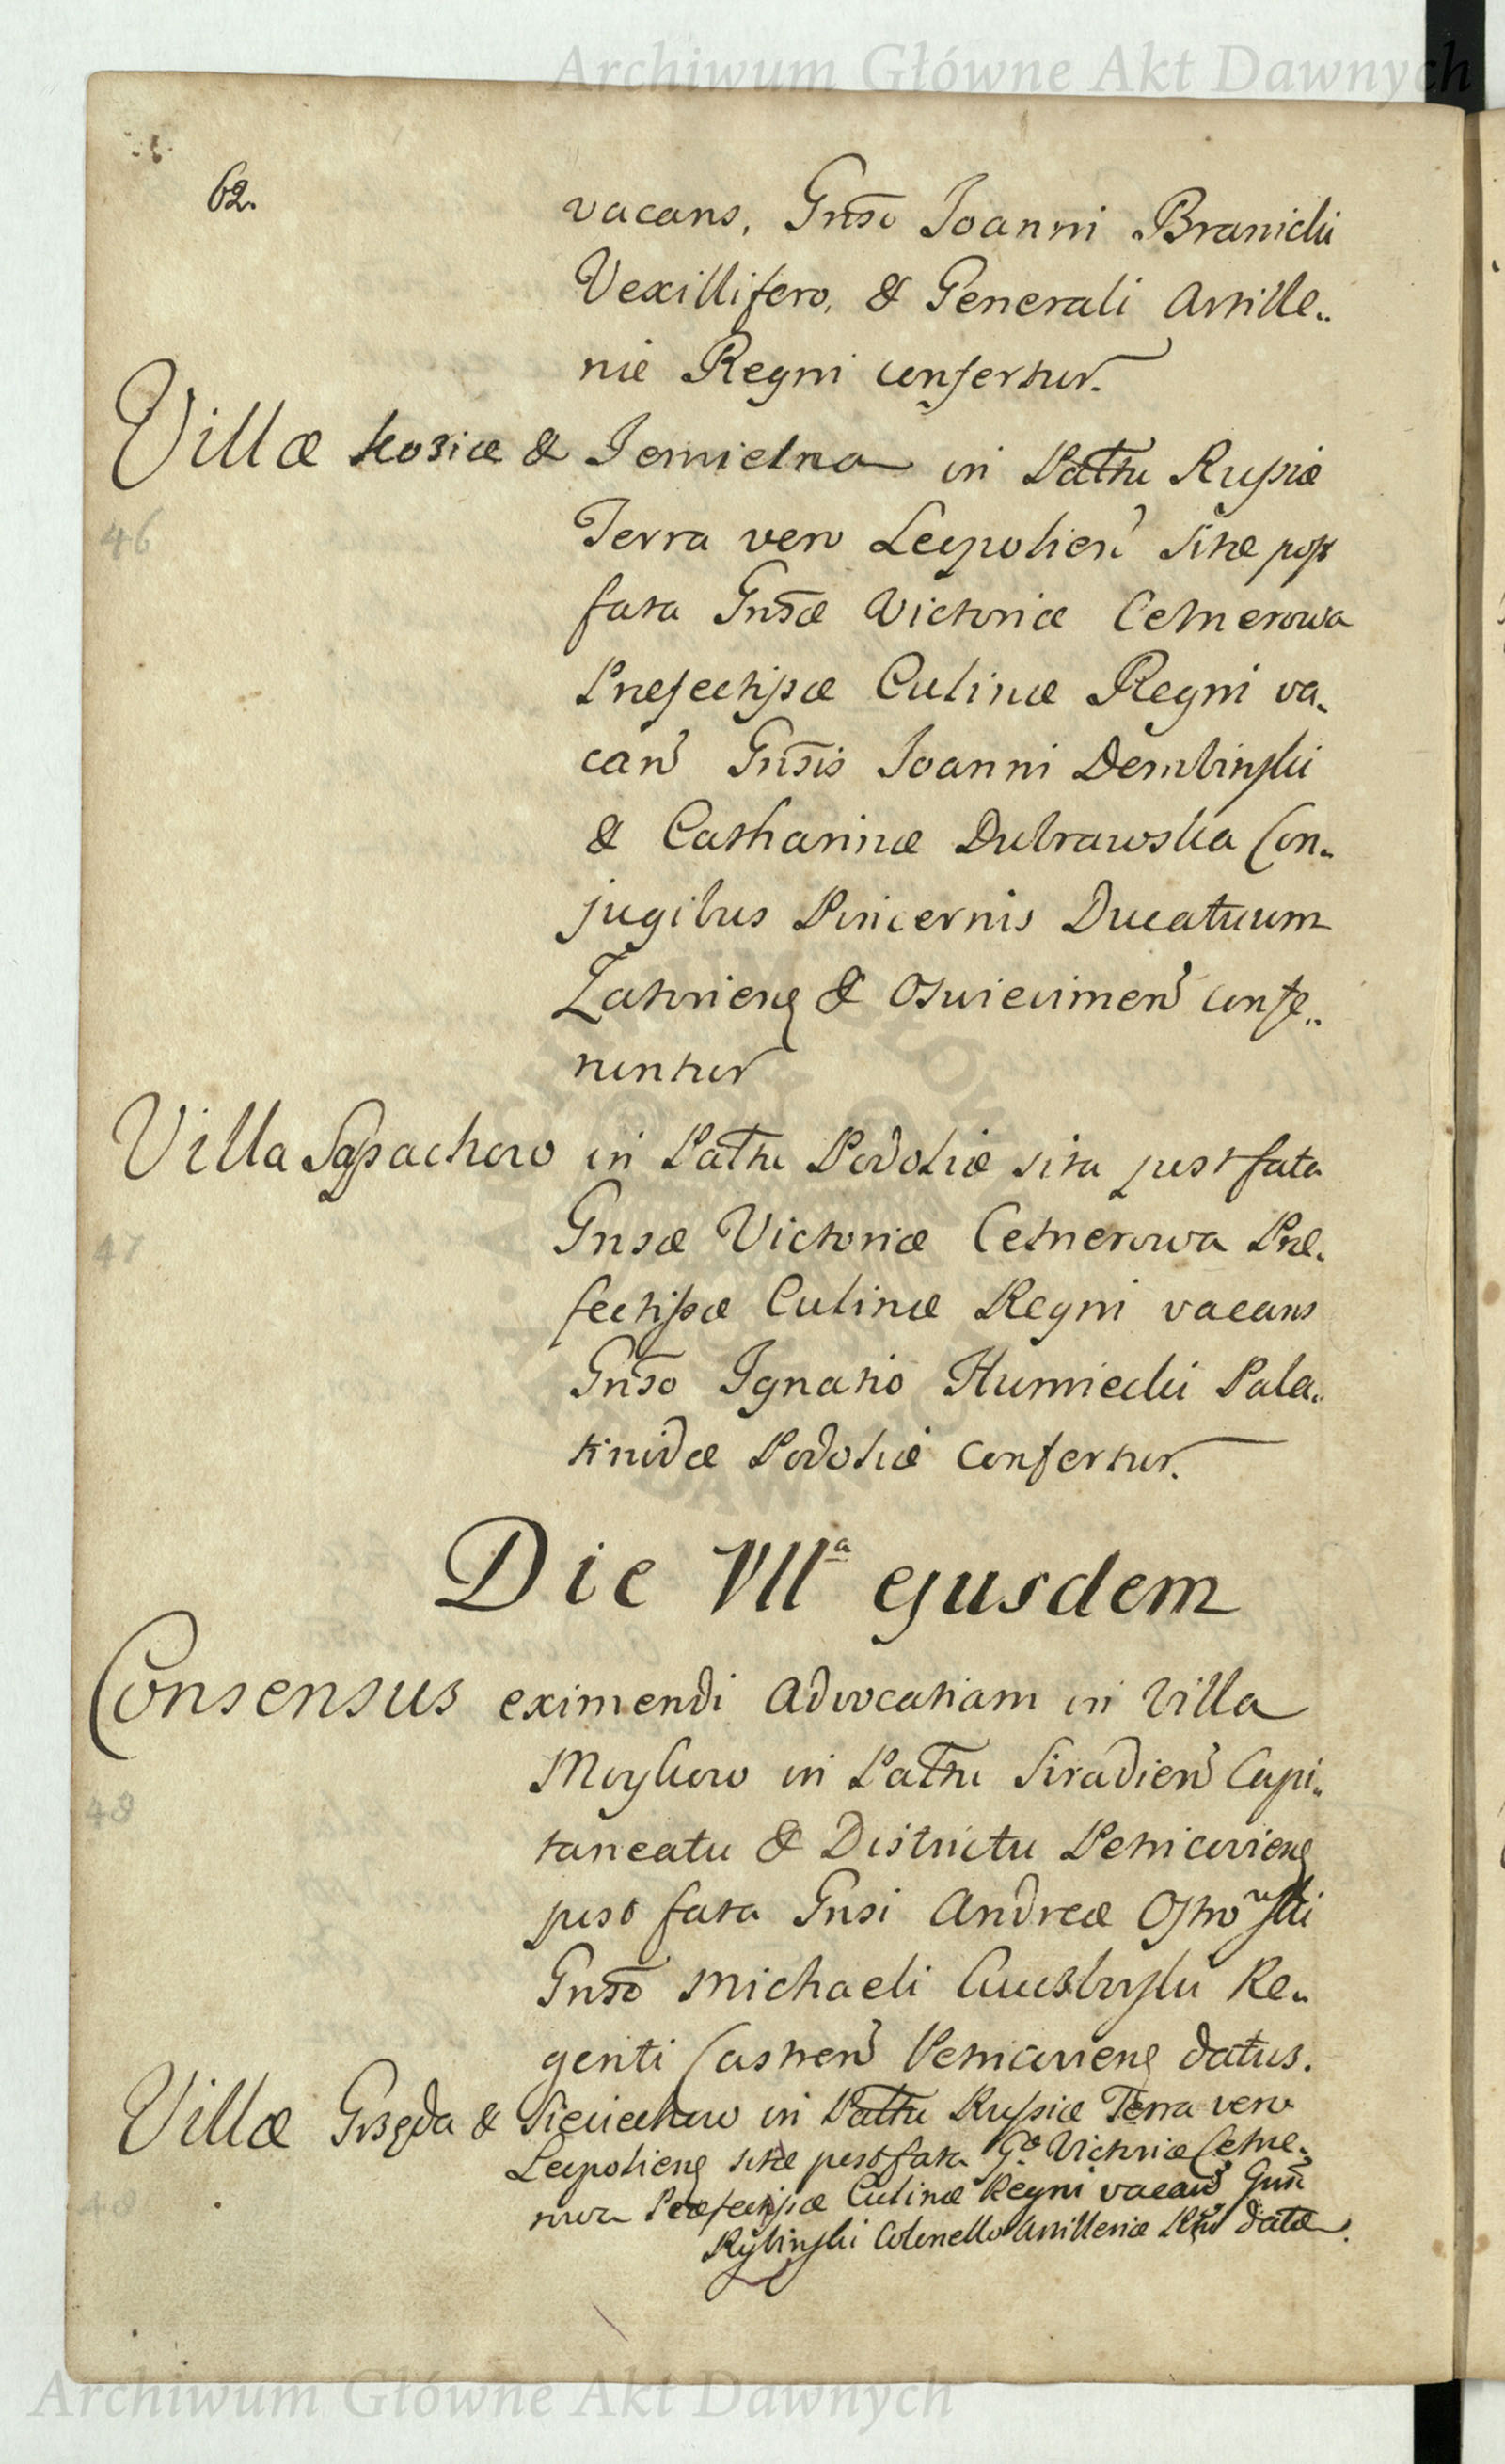 Archiwum Główne Akt Dawnych
62.
vacans, Gnso Joanni Branicki
Vexillifero, & Generali Artille„
riæ Regni confertur.
Villæ Kozice & Jemielna in Pattu Russiæ
46
Terra vero Leopolien sitæ post
fata Gnsæ Victoriæ Cetnerowa
Præfectissæ Culinæ Regni va„
can Gnsis Joanni Dembinski
& Catharinæ Dubrawska Con„
jugibus Pincernis Ducatuum
Zatorien & Oswiecimen confe„
runtur
Villa Sapachow in Pattu Podoliæ sita post fata
47
Gnsæ Victoriæ Cetnerowa Præ„
fectissæ Culinæ Regni vacans
Gnso Ignatio Humiecki Pala„
tinidæ Podoliæ confertur.
Die VIIa ejusdem
Consensus eximendi Advocatiam in Villa
in Pattu Siradien Capi„
48
taneatu & Districtu Petricovien
post fata Gnsi Andreæ Ostrowski
Gnso Michaeli Re„
genti Castren Petricovien datus.
Villæ Grzęda & Sieciechow in Pattu Russiæ Terra vero
Leopolien sitæ post fata Gæ Victoriæ Cetne„
48
rowa Præfectissæ Culinæ Regni vacan
Rybinski Colonello Artilleriæ datæ.
Archiwum Główne Akt Dawnych